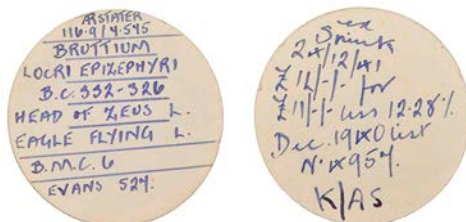 ARSTATER
116.9/7.575
BRUTTIUM
LOCRI EPIZEPHYRI
B.C. 332-326
HEAD OF ZEUS L.
EAGLE FLYING L.
B.M.C. 6
EVANS 524.
Spink
24/12/41
12/-/- for
11/-/- less 12.28%
Dec. 1940 List
No. 4954.
K/AS